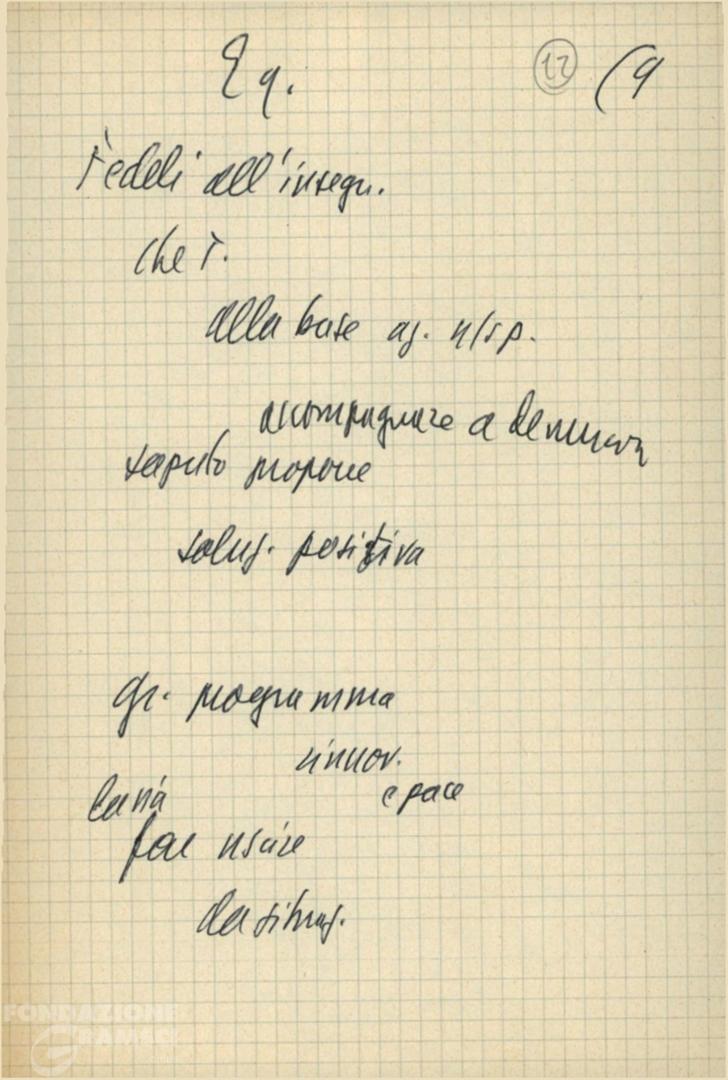 Eq. 12 (9
Fedeli all'insegn.
che T.
alla base az. n/sp.
accompagnare a denuncia
saputo proporre
soluz. positiva
gr. programma
rinnov.
e pace
la via
far uscire
da situaz.
FONDAZIONE
GRAMSCI